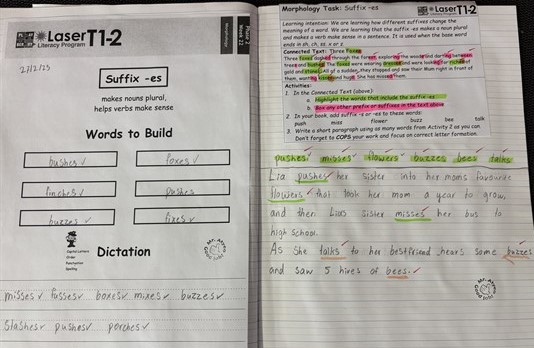 LaserT1-2
Literacy Program
Morphology
Phase 2
Week 22
Suffix -es
makes nouns plural,
helps verbs make sense
Words to Build
bushes foxes
finches pushes
buzzes fixes
Capital Letters
Order
Punctuation
Spelling
Dictation
misses fusses boxes mixes buzzes
slashes pushes porches
Morphology Task: Suffix -es
LaserT1-2
Literacy Program
Learning intention: We are learning how different suffixes change the
meaning of a word. We are learning that the suffix -es makes a noun plural
and makes a verb make sense in a sentence. It is used when the base word
ends in sh, ch, ss, x or z.
Connected Text: Three Foxes
Three foxes dashed through the forest, exploring the woods and darting between
trees and bushes. The foxes were wearing dresses and were looking for riches of
gold and stones. All of a sudden, they stopped and saw their Mum right in front of
them, wanting kisses and hugs. She has missed them.
Activities:
1. In the Connected Text (above):
a. Highlight the words that include the suffix -es
b. Box any other prefix or suffixes in the text above
2. In your book, add suffix -s or -es to these words:
push miss flower buzz bee talk
3. Write a short paragraph using as many words from Activity 2 as you can
Don't forget to COPS your work and focus on correct letter formation.
pushes misses flowers buzzes bees talks
Lia pushes her sister into her moms favourite
flowers that took her mom a year to grow,
and then Lias sister misses her bus to
high school.
As she talks to her bestfriend hears some buzzes
and saw 5 hives of bees.